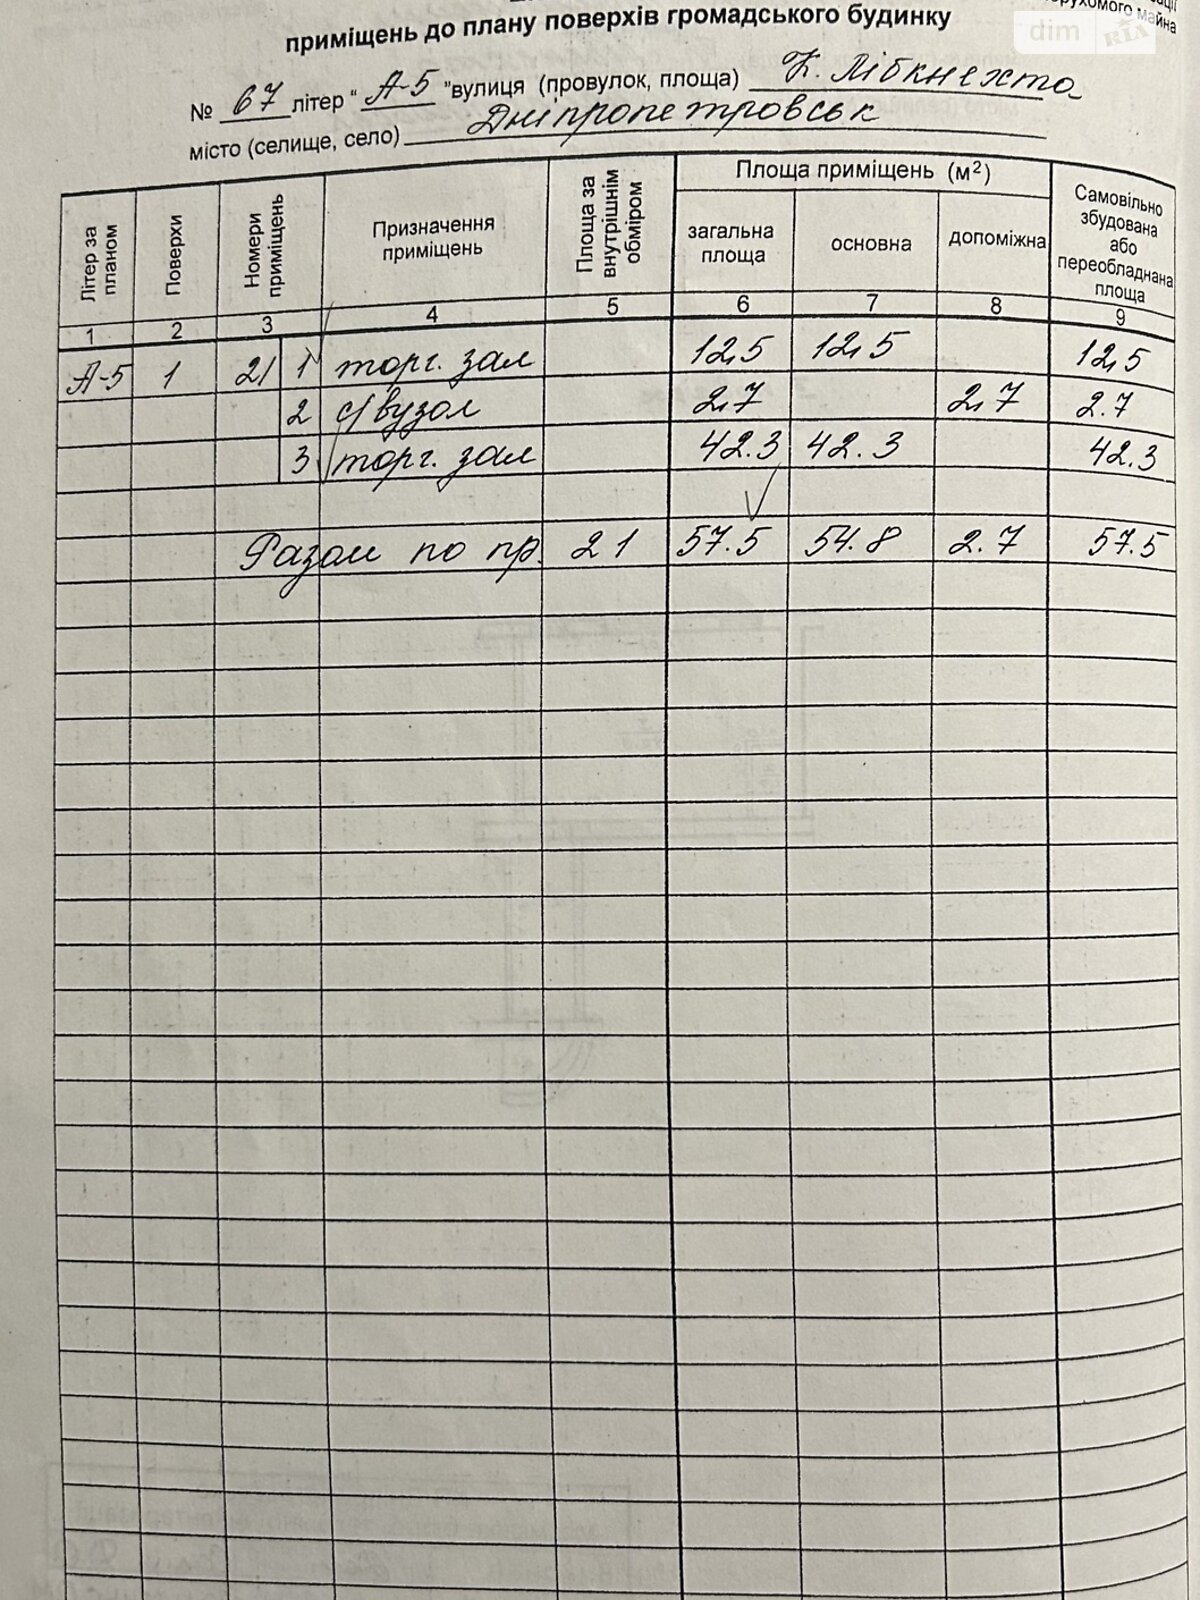 рухомого майна
dim RIA
приміщень до плану поверхів громадського будинку
№ 67 літер “ А-5 ”вулиця (провулок, площа) К. Лібкнехта
місто (селище, село) Дніпропетровськ
Літер за планом
Поверхи
Номери приміщень
Призначення приміщень
Площа за внутрішнім обміром
Площа приміщень (м²)
загальна площа
основна
допоміжна
Самовільно збудована або переобладнана площа
1 2 3 4 5 6 7 8 9
А-5 1 21 1 торг. зал 12,5 12,5 12,5
2 с/вузол 2,7 2,7 2.7
3 торг. зал 42.3 42.3 42.3
Разом по пр. 21 57.5 54.8 2.7 57.5